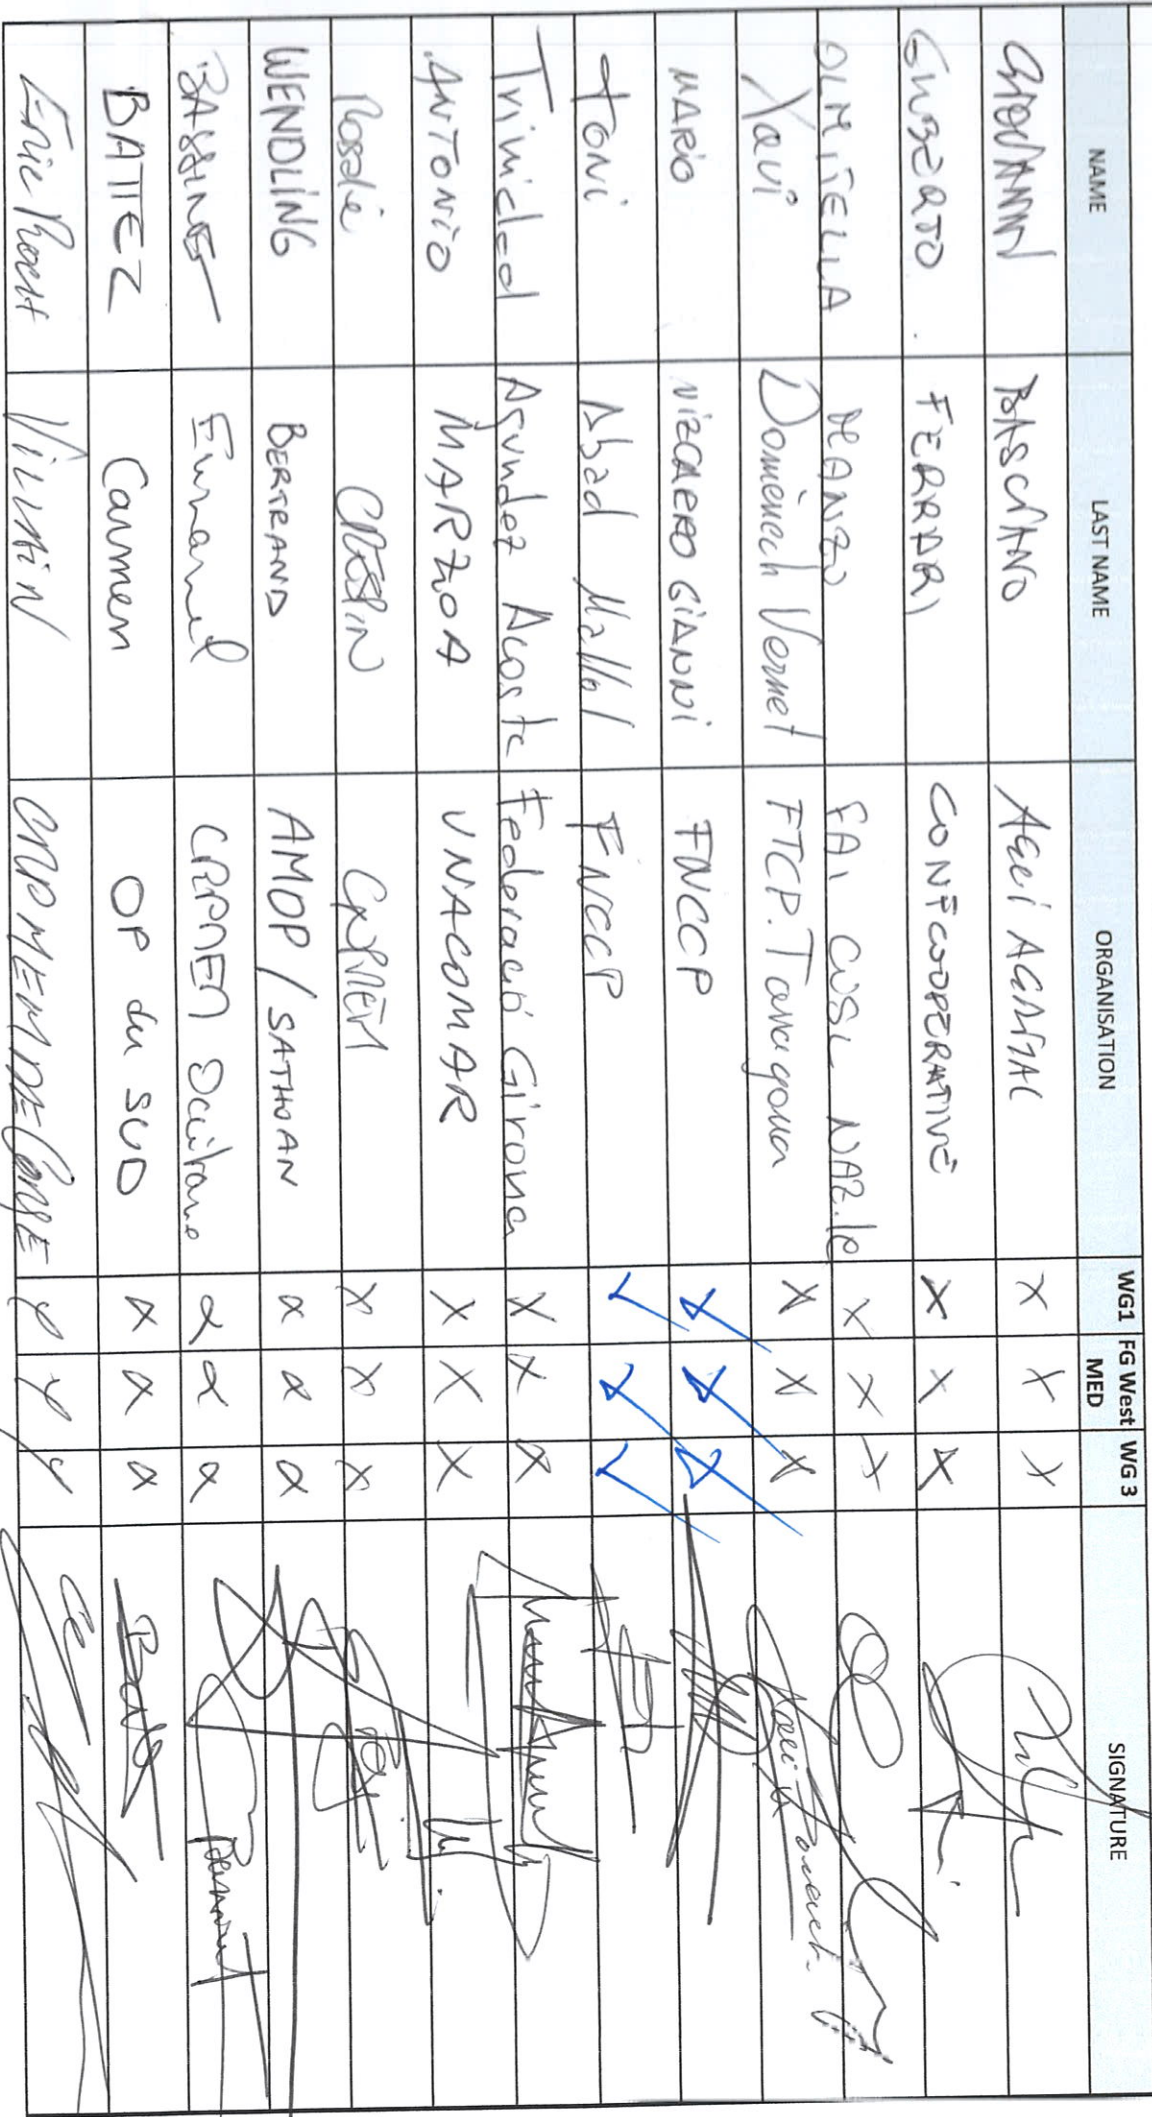 NAME LAST NAME ORGANISATION WG1 FG West MED WG 3 SIGNATURE
GIOVANNI BASCIANO AGCI AGRITAL X X X
GILBERTO FERRARI CONFCOOPERATIVE X X X
DOMITILLA FAI CISL NAZ.le X X X
Xavi Domènech Vernet FTCP. Tarragona X X X
MARIO VIZCARRO GIANNI FNCCP
TONI Abad Mallol FNCCP
Trinidad Agundez Acosta Federació Girona X X X
ANTONIO MARZOA UNACOMAR X X X
Rosalie CRESPIN CNPMEM X X X
WENDLING BERTRAND AMOP / SATHOAN X X X
BASSINET Emmanuel CRPMEM Occitanie X X X
BATTEZ Carmen OP du SUD X X X
Eric VILLMIN CRPMEM DE CORSE X X X